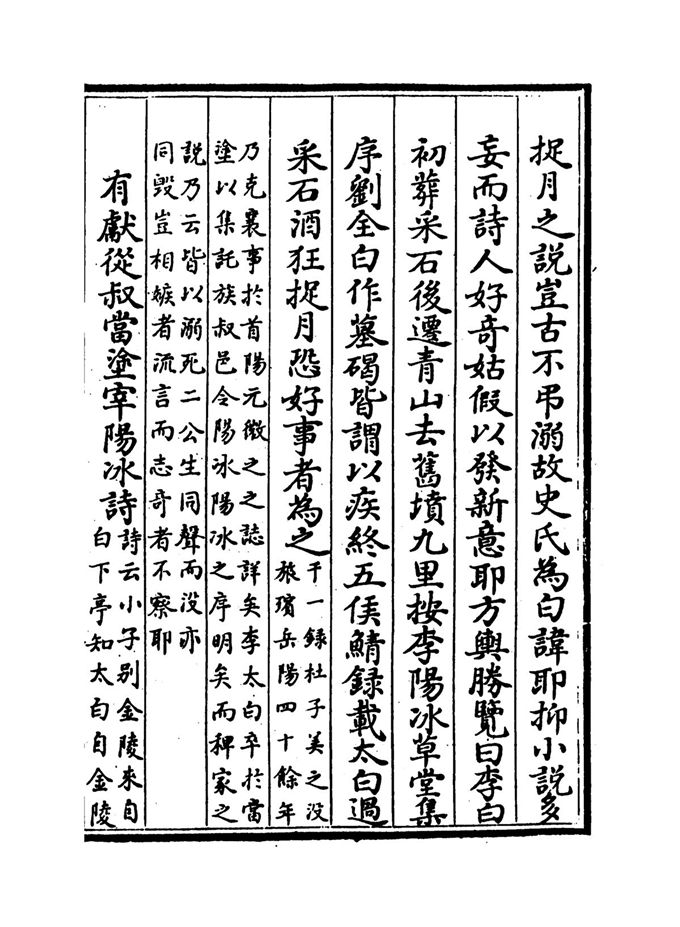 捉月之説豈古不弔溺故史氏為白諱耶抑小説多
妄而詩人好奇姑假以發新意耶方輿勝覽曰李白
初葬采石後遷青山去舊墳九里按李陽冰草堂集
序劉全白作墓碣皆謂以疾終五侯鯖録載太白過
采石酒狂捉月恐好事者為之
干一録杜子美之没
旅殯岳陽四十餘年
乃克襄事於首陽元微之之誌詳矣李太白卒於當
塗以集託族叔邑令陽冰陽冰之序明矣而稗家之
説乃云皆以溺死二公生同聲而没亦
同毁豈相嫉者流言而志奇者不察耶
有獻從叔當塗宰陽冰詩
詩云小子别金陵來自
白下亭知太白自金陵